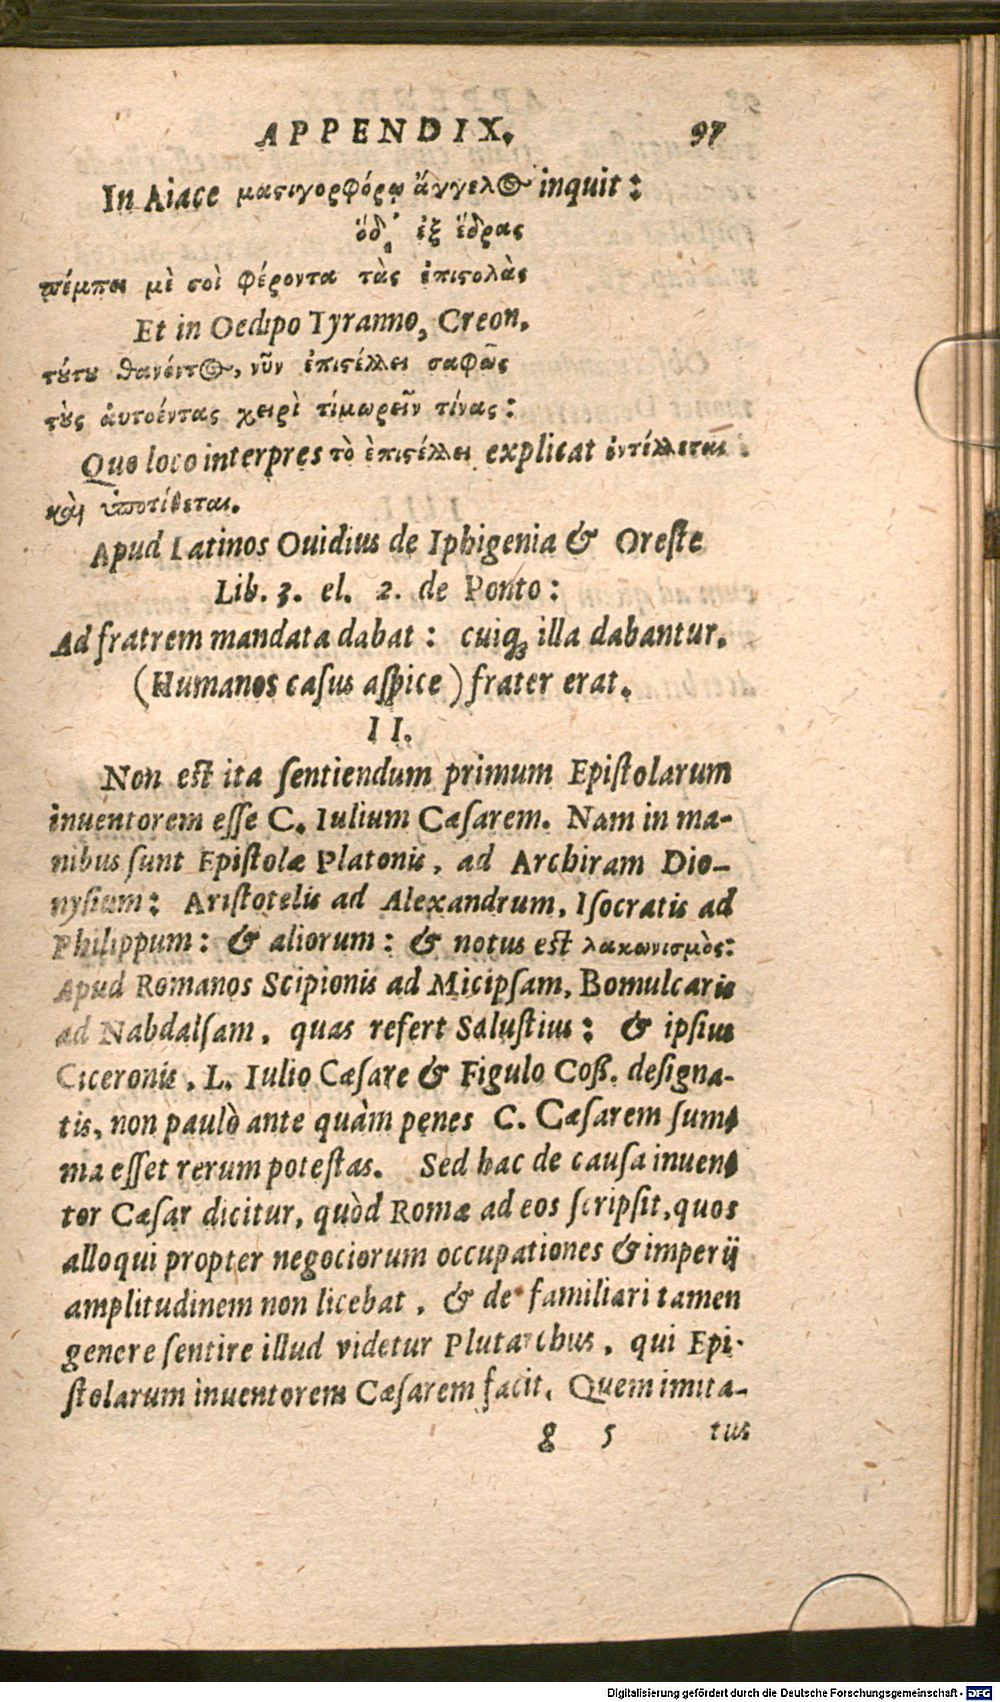 APPENDIX. 97
In Aiace μαςιγορφόρῳ ἄγγελος inquit:
ὅδ' ἐξ ἕδρας
πέμπει μὲ σοὶ φέροντα τὰς ἐπιςολὰς
Et in Oedipo Tyranno, Creon.
τύτυ θανόντος, νῦν ἐπιςέλλει σαφῶς
τὺς ἀυτοέντας χειρὶ τίμωρεῖν τίνας:
Quo loco interpres τὸ ἐπιςέλλει explicat ἐντέλλεται
καὶ ὑποτίθεται.
Apud Latinos Ouidius de Iphigenia & Oreſte
Lib. 3. el. 2. de Ponto:
Ad fratrem mandata dabat: cuiq; illa dabantur.
(Humanos caſus aſpice) frater erat.
II.
Non est ita ſentiendum primum Epiſtolarum
inuentorem eſſe C. Iulium Cæſarem. Nam in ma-
nibus ſunt Epiſtolæ Platonis, ad Archiram Dio-
nyſium: Ariſtotelis ad Alexandrum, Iſocratis ad
Philippum: & aliorum: & notus est λακωνισμὸς:
Apud Romanos Scipionis ad Micipſam, Bomulcaris
ad Nabdalſam, quas refert Saluſtius: & ipſius
Ciceronis, L. Iulio Cæſare & Figulo Coß. deſigna-
tis, non paulò ante quàm penes C. Cæſarem ſum-
ma eſſet rerum poteſtas. Sed hac de cauſa inuen-
tor Cæſar dicitur, quòd Romæ ad eos ſcripſit, quos
alloqui propter negociorum occupationes & imperij
amplitudinem non licebat, & de familiari tamen
genere ſentire illud videtur Plutarchus, qui Epi-
ſtolarum inuentorem Cæſarem facit. Quem imita-
g 5 tus
Digitalisierung gefördert durch die Deutsche Forschungsgemeinschaft - DFG